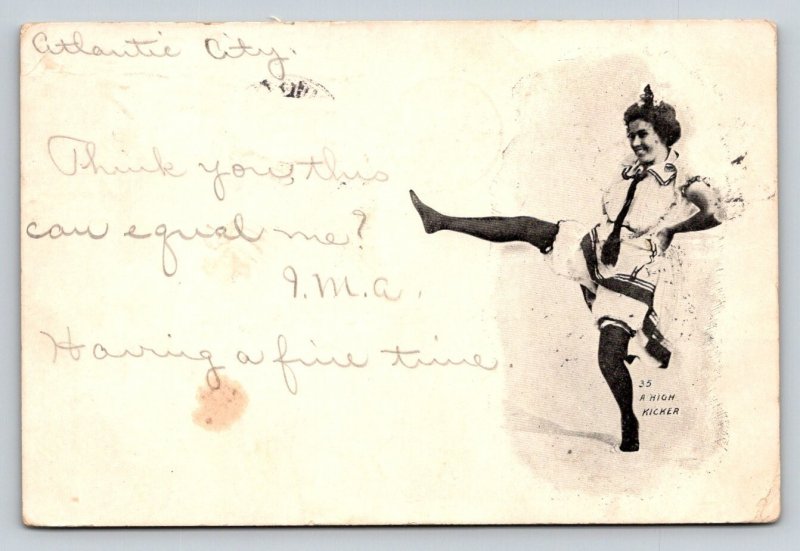 Atlantic City.
Think you this
can equal me?
I.M.A.
Having a fine time.
35
A HIGH
KICKER